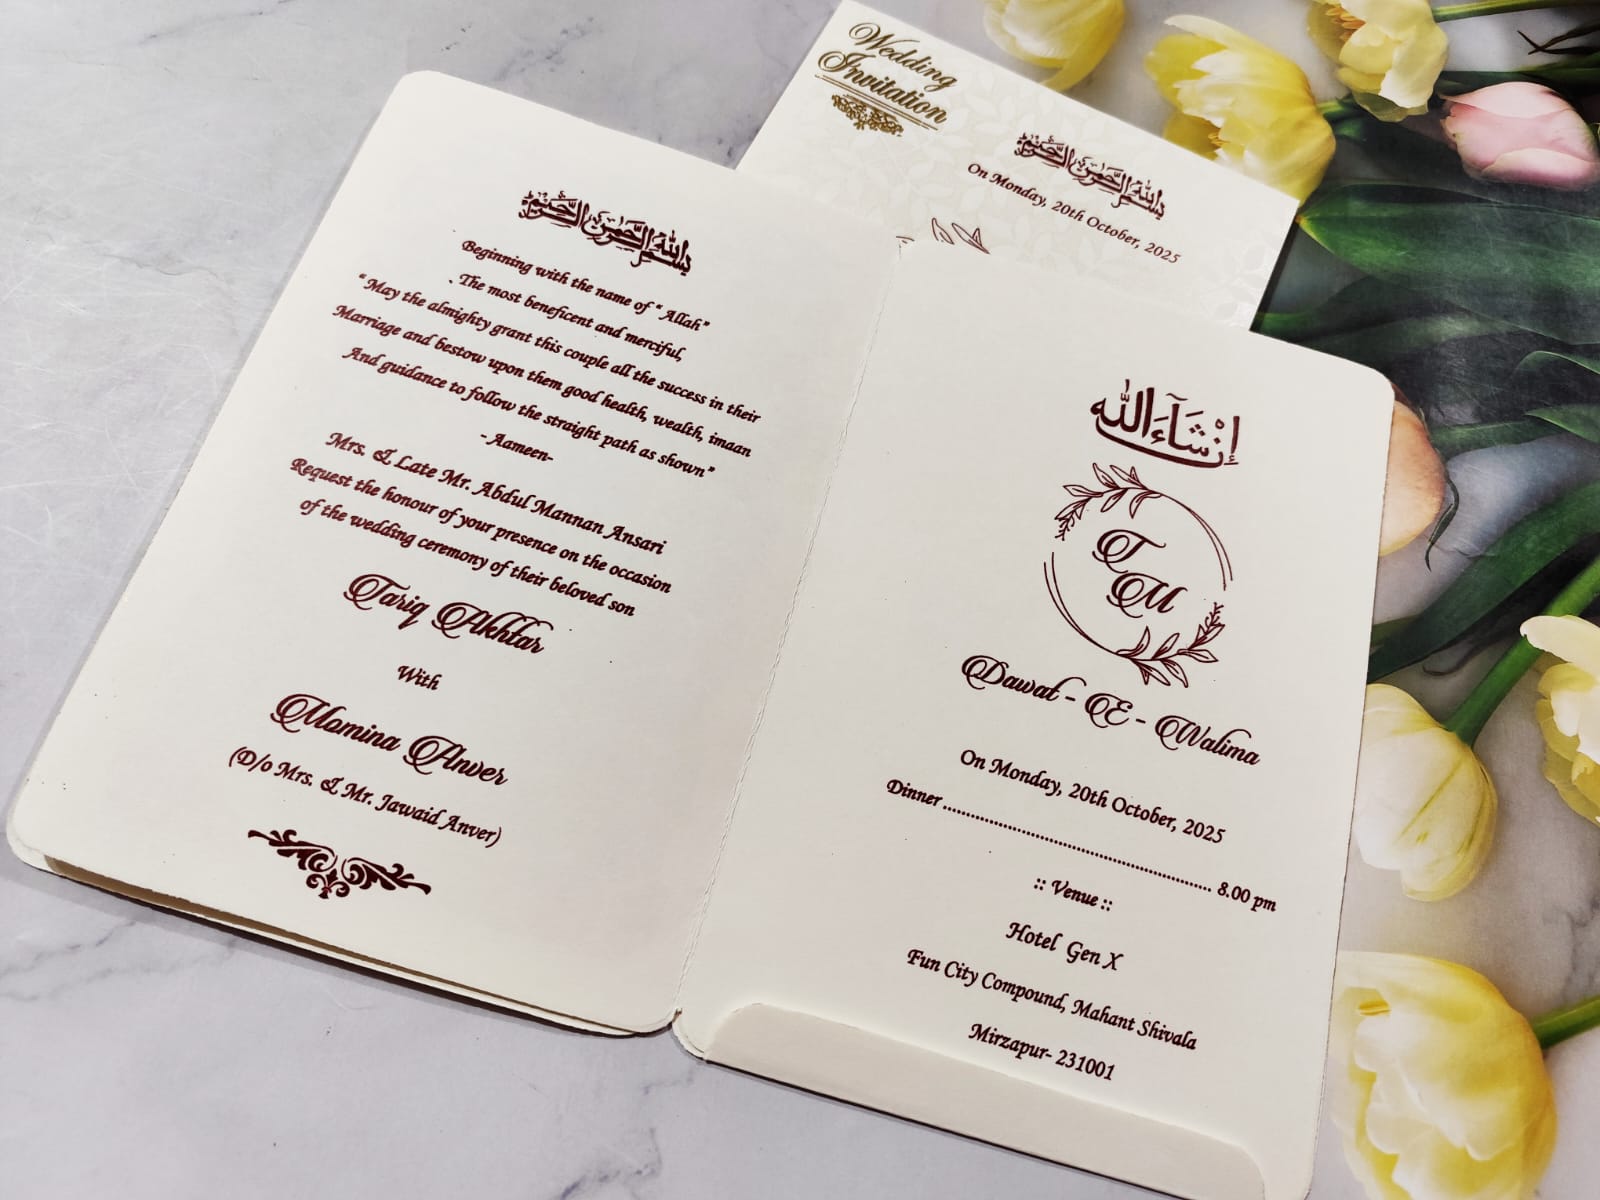 Wedding
Invitation
بسم الله الرحمن الرحيم
On Monday, 20th October, 2025
بسم الله الرحمن الرحيم
Beginning with the name of “ Allah”
. The most beneficent and merciful,
“May the almighty grant this couple all the success in their
Marriage and bestow upon them good health, wealth, imaan
And guidance to follow the straight path as shown”
- Aameen-
Mrs. & Late Mr. Abdul Mannan Ansari
Request the honour of your presence on the occasion
of the wedding ceremony of their beloved son
Tariq Akhtar
With
Momina Anver
(D/o Mrs. & Mr. Jawaid Anver)
إِنْ شَآءَ اللّٰه
T
M
Dawat - E - Walima
On Monday, 20th October, 2025
Dinner ........................................................ 8.00 pm
:: Venue ::
Hotel Gen X
Fun City Compound, Mahant Shivala
Mirzapur- 231001